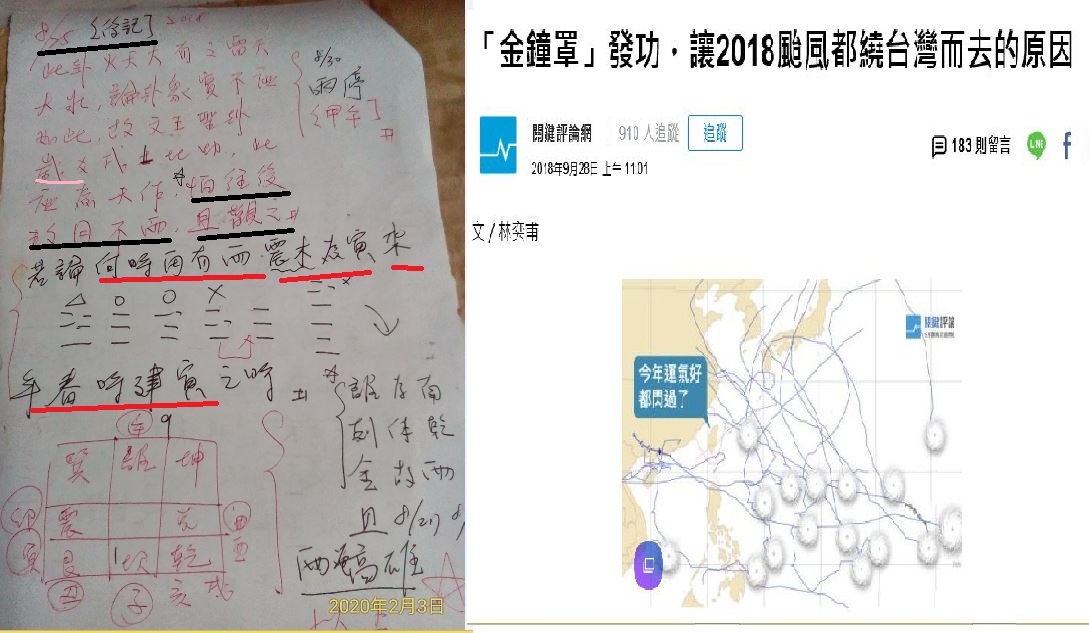 8/25 [後記] 2018
此卦火天大有之雷天
大壯,論卦象實不應
如此,故文王聖卦
此
應為天作,怕往後
數日不雨,且觀之
8/30
雨停
[甲午]
若論何時再有雨,震木在寅 來
年春時建寅之時
午 9
巽 離 坤
卯 震 兌 酉
寅 艮 坎 乾
丑 子 亥 戌
離在南
剋体乾
金故雨
且 8/27
雨淹高雄
2020年2月3日
「金鐘罩」發功,讓2018颱風都繞台灣而去的原因
關鍵評論網 910 人追蹤 追蹤
183 則留言 LINE f
2018年9月28日 上午11:01
文 / 林奕甫
關鍵評論
今年運氣好
都閃過了